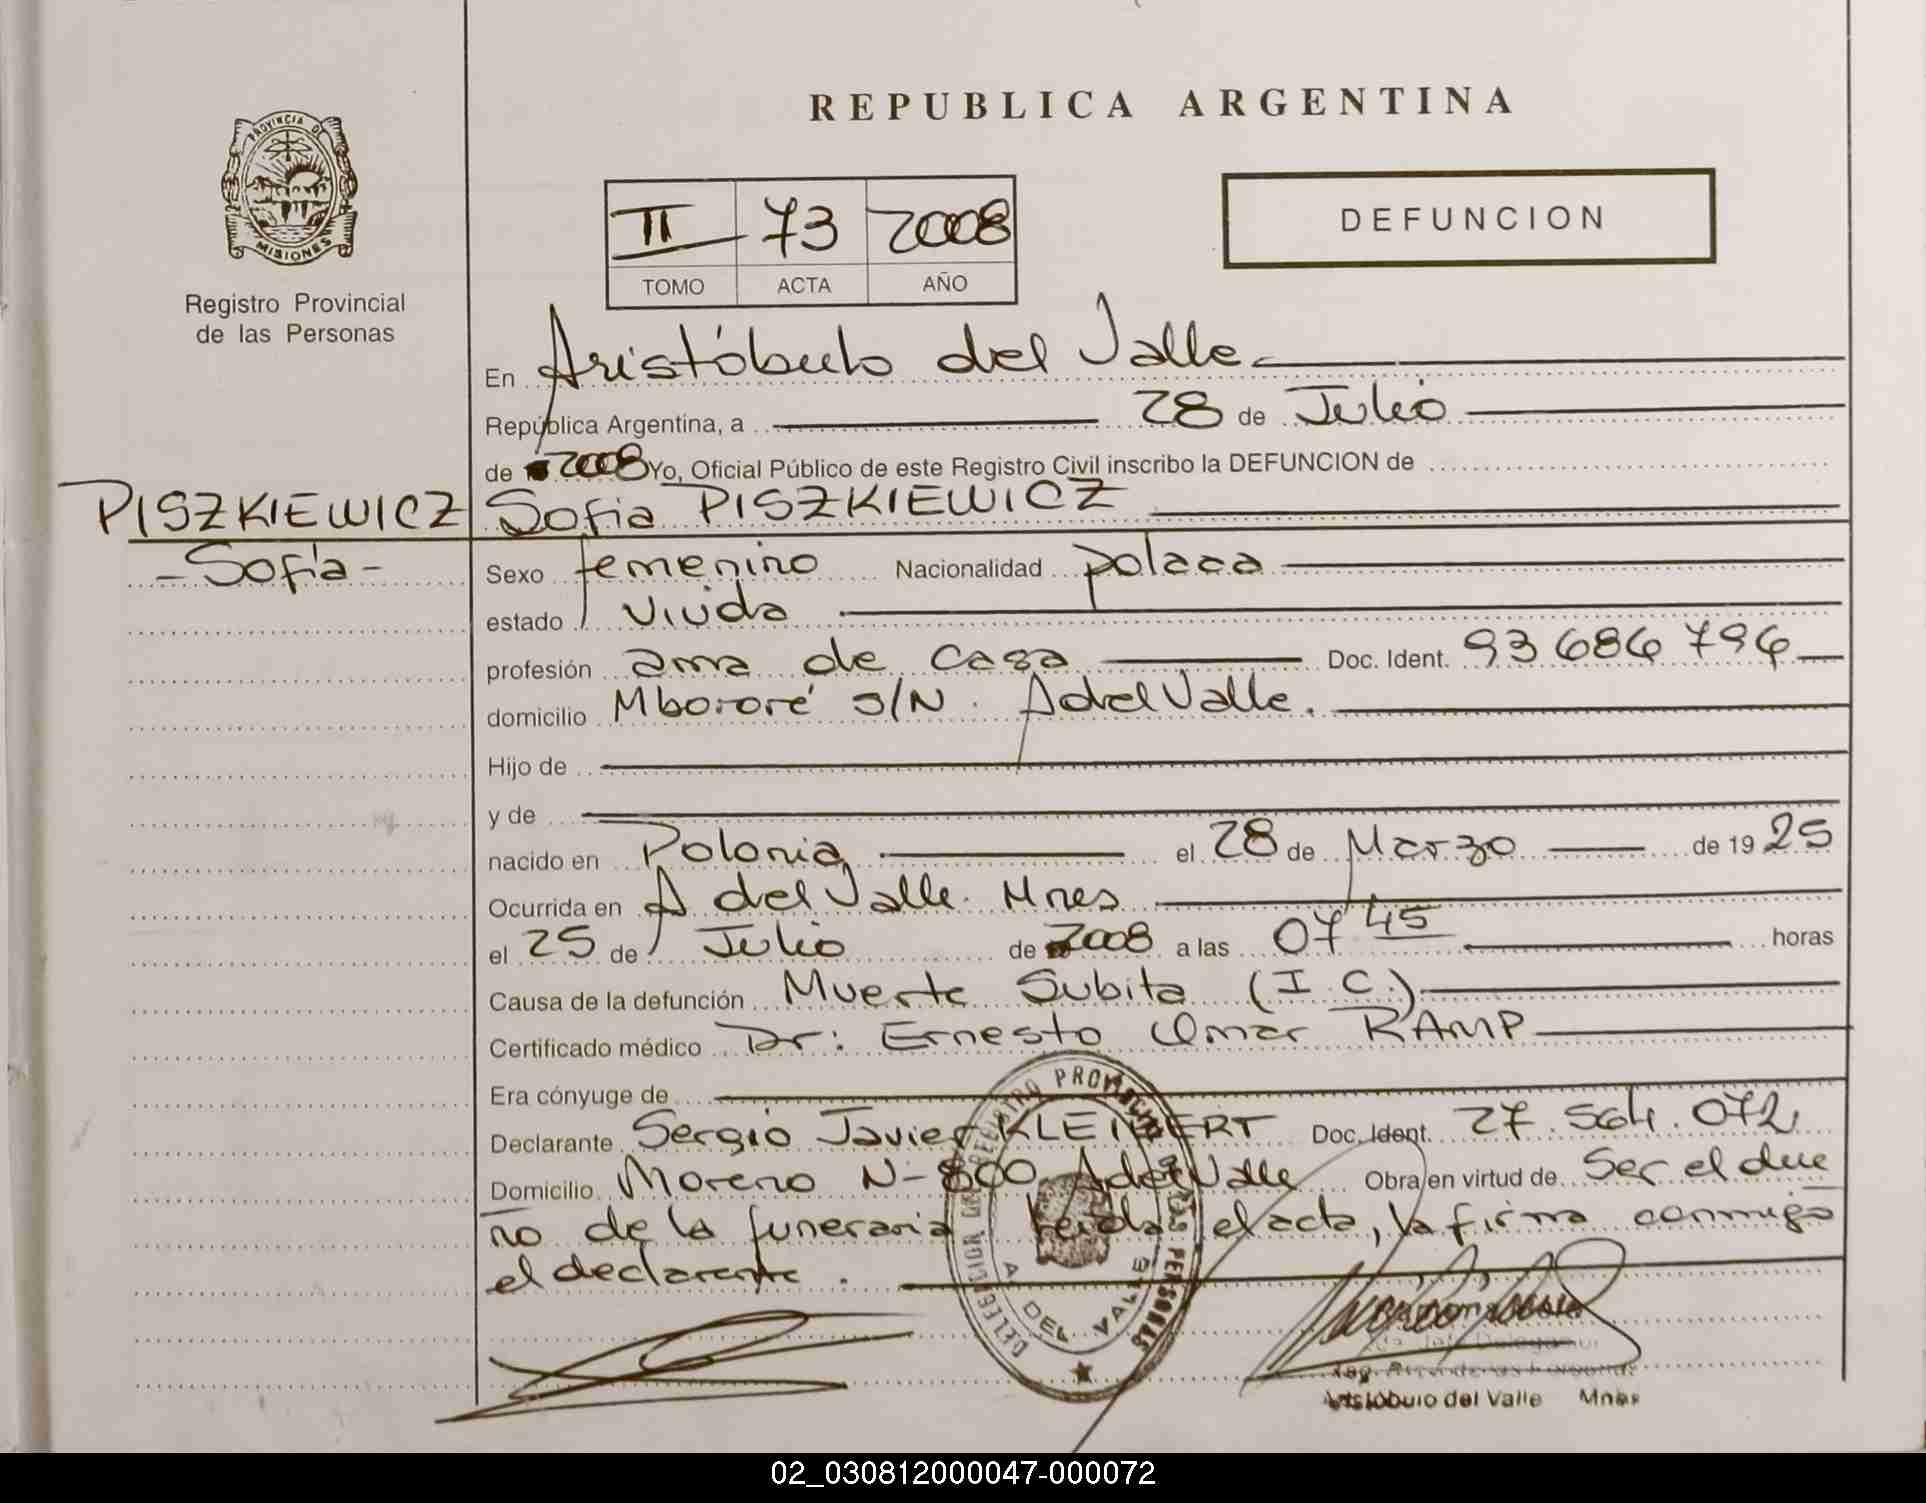 REPUBLICA ARGENTINA
PROVINCIA D
MISIONES
Registro Provincial
de las Personas
II 73 2008
TOMO ACTA AÑO
DEFUNCION
En Aristóbulo del Valle
República Argentina, a 28 de Julio
de 2008 Yo, Oficial Público de este Registro Civil inscribo la DEFUNCION de
PISZKIEWICZ
- Sofía -
Sofia PISZKIEWICZ
Sexo femenino Nacionalidad polaca
estado viuda
profesión ama de casa Doc. Ident. 93 686 796
domicilio Mbororé s/N. A del Valle.
Hijo de
y de
nacido en Polonia el 28 de Marzo de 1925
Ocurrida en A del Valle. Mnes
el 25 de Julio de 2008 a las 07 45 horas
Causa de la defunción Muerte Subita (I.C.)
Certificado médico Dr: Ernesto Omar RAMP
Era cónyuge de
Declarante Sergio Javier Doc. Ident. 27.564.072
Domicilio Moreno N- 800 A del Valle Obra en virtud de Ser el due
ño de la funeraria leída el acta, la firma conmigo
el declarante.
DELEGACION REGISTRO PROVINCIAL DE LAS PERSONAS
A. DEL VALLE
Aristóbulo del Valle Mnes
02_030812000047-000072